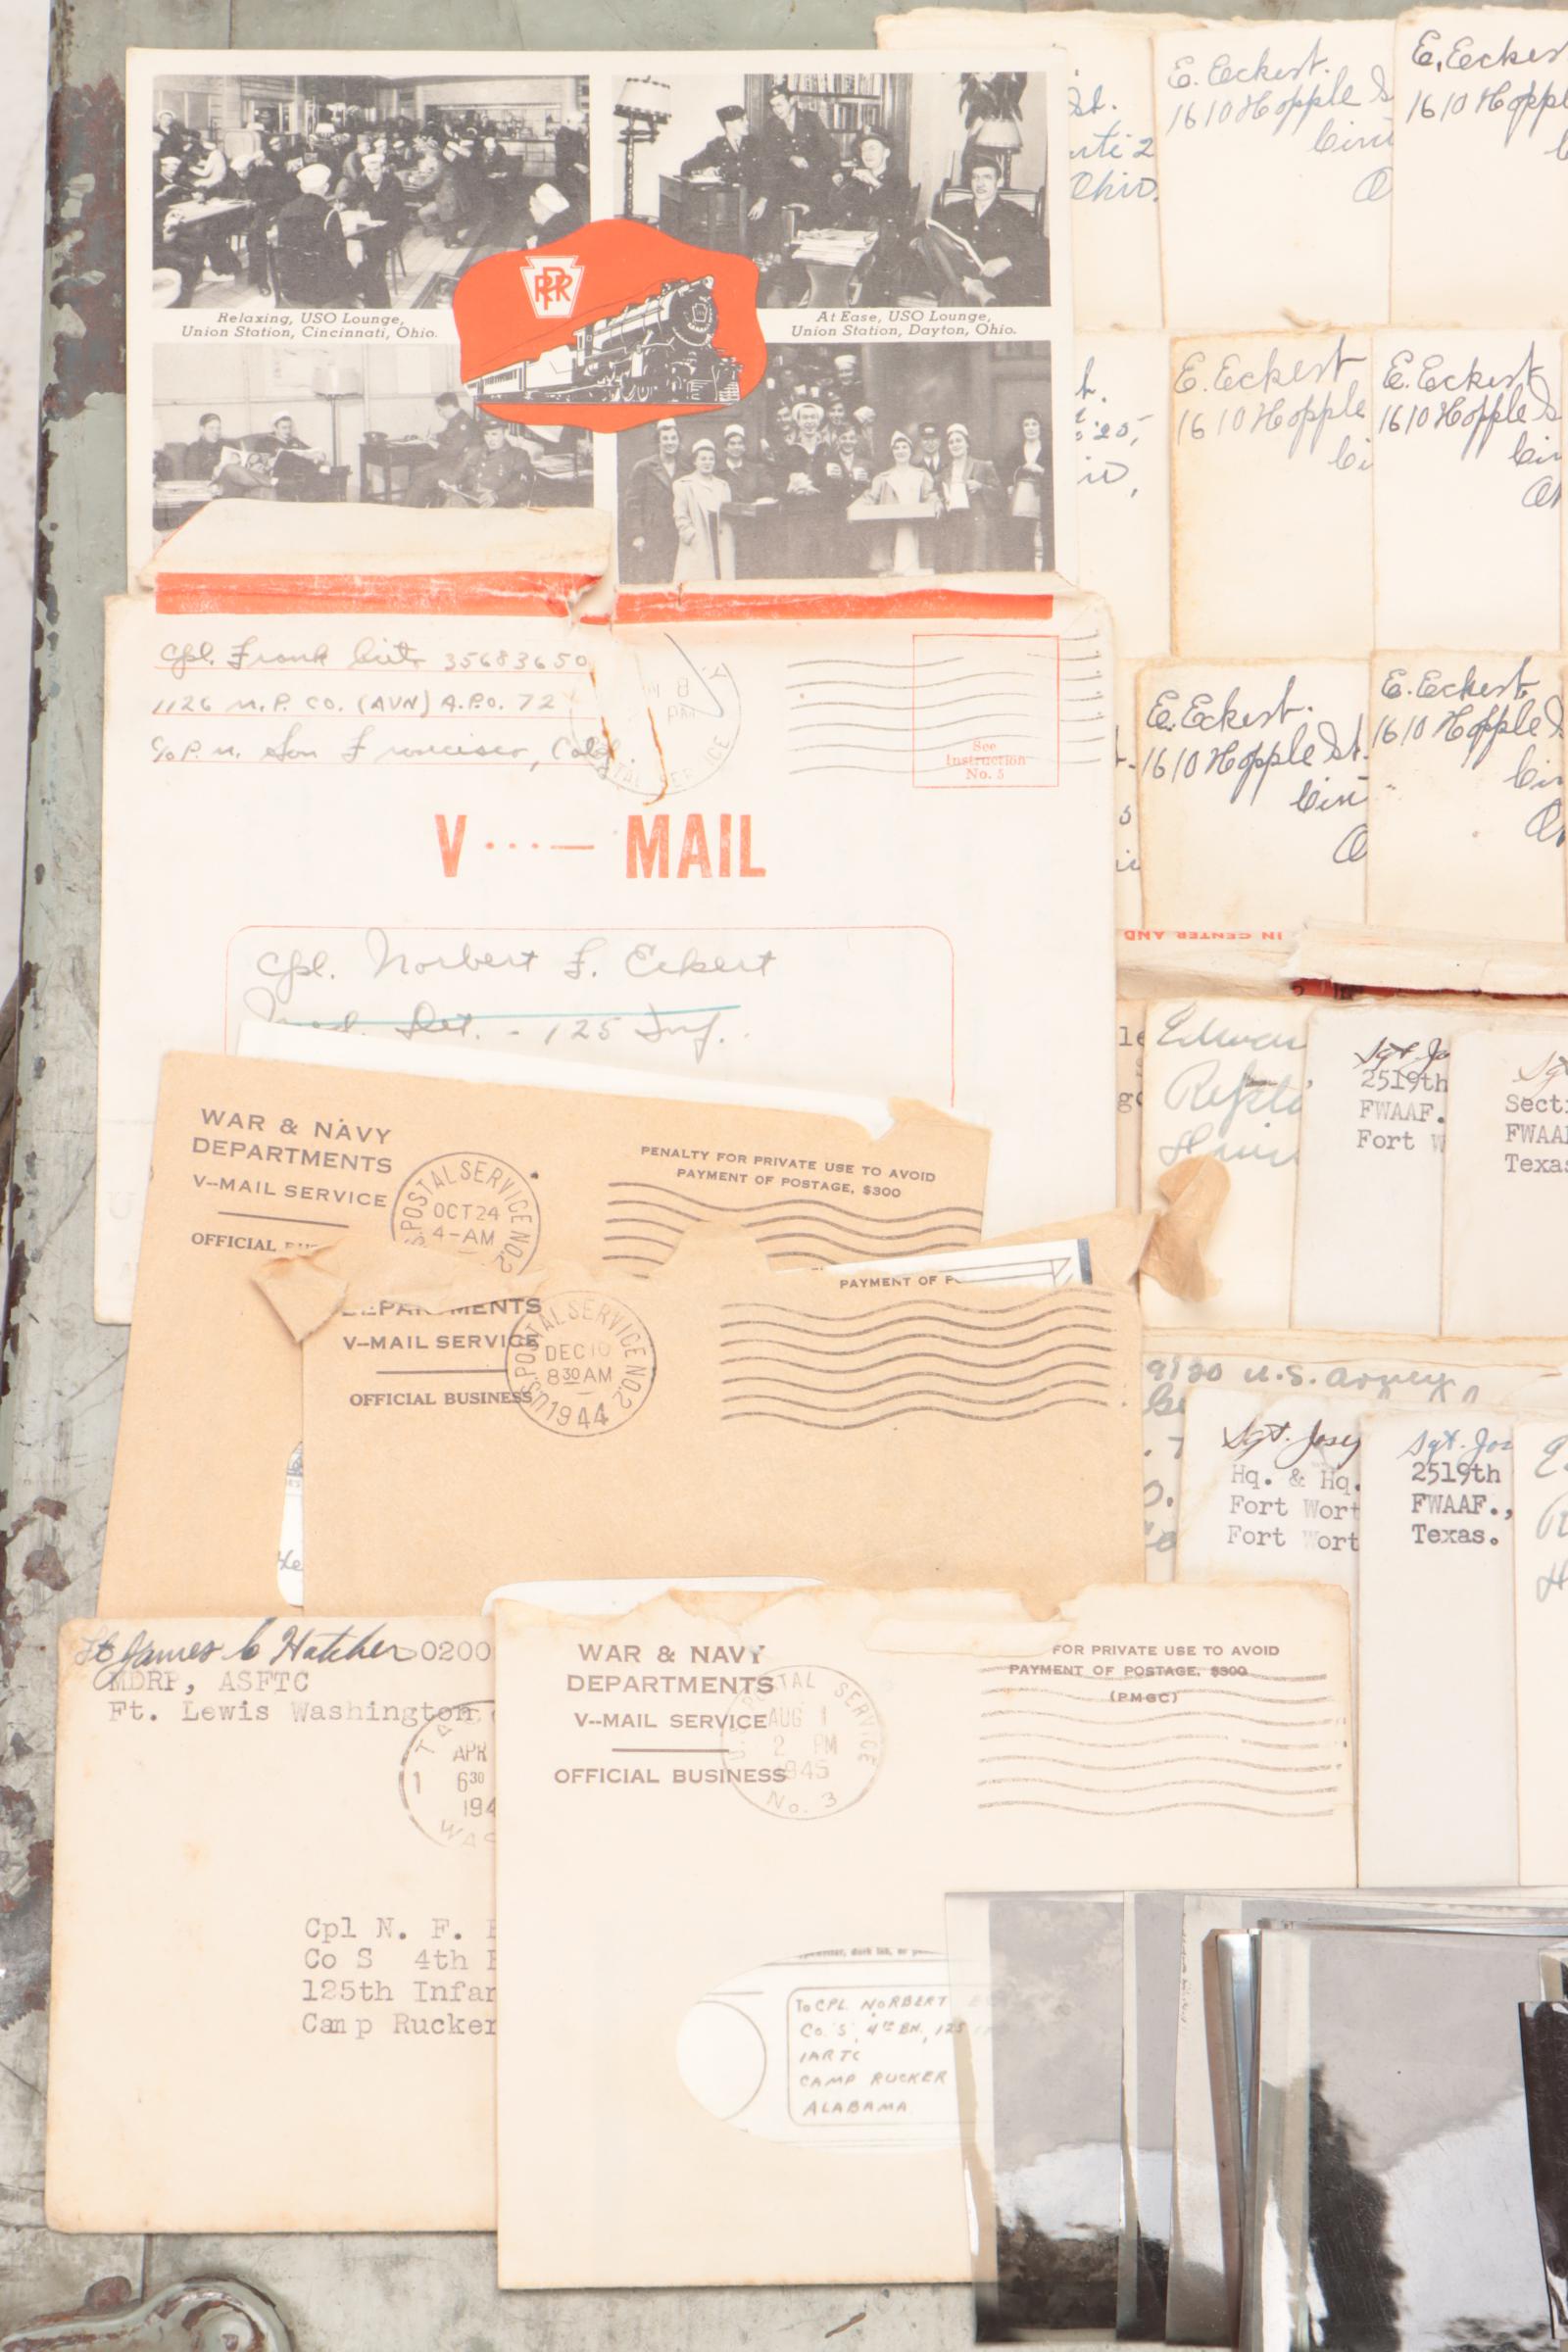 PRR
Relaxing, USO Lounge,
Union Station, Cincinnati, Ohio.
At Ease, USO Lounge,
Union Station, Dayton, Ohio.
St.
2
Ohio.
E. Eckert.
1610 Hopple
E. Eckert
1610 Hopple
E. Eckert
1610 Hopple
E. Eckert
1610 Hopple
E. Eckert.
1610 Hopple St.
E. Eckert.
1610 Hopple S
Cpl. Frank 35683650
1126 M.P. CO. (AVN) A.P.O. 72
c/o P.M. San Francisco, Calif.
8
PM
See
Instruction
No. 5
V ...— MAIL
Cpl. Norbert F. Eckert
Med. Det. - 125 Inf.
IN CENTER AND
Sgt. Jo
2519th
FWAAF.
Fort W
Sect
FWAA
Texas
WAR & NAVY
DEPARTMENTS
V--MAIL SERVICE
OFFICIAL
POSTAL SERVICE NO.2
OCT 24
4-AM
PENALTY FOR PRIVATE USE TO AVOID
PAYMENT OF POSTAGE, $300
DEPARTMENTS
V--MAIL SERVICE
OFFICIAL BUSINESS
U.S. POSTAL SERVICE NO.2
DEC 10
830 AM
1944
PAYMENT OF
9130 U.S. Army
Sgt. Josep
Hq. & Hq.
Fort Wort
Fort Wort
Sgt. Jos
2519th
FWAAF.,
Texas.
Lt James C Hatcher 0200
MDRP, ASFTC
Ft. Lewis Washington
APR
1 630
194
Cpl N. F. E
Co S 4th B
125th Infan
Camp Rucker
WAR & NAVY
DEPARTMENTS
V--MAIL SERVICE
OFFICIAL BUSINESS
U.S. POSTAL SERVICE
AUG 1
2 PM
1945
No. 3
FOR PRIVATE USE TO AVOID
PAYMENT OF POSTAGE, $300
(PMGC)
To CPL NORBERT
Co. 'S', 4TH BN., 125
IARTC
CAMP RUCKER
ALABAMA